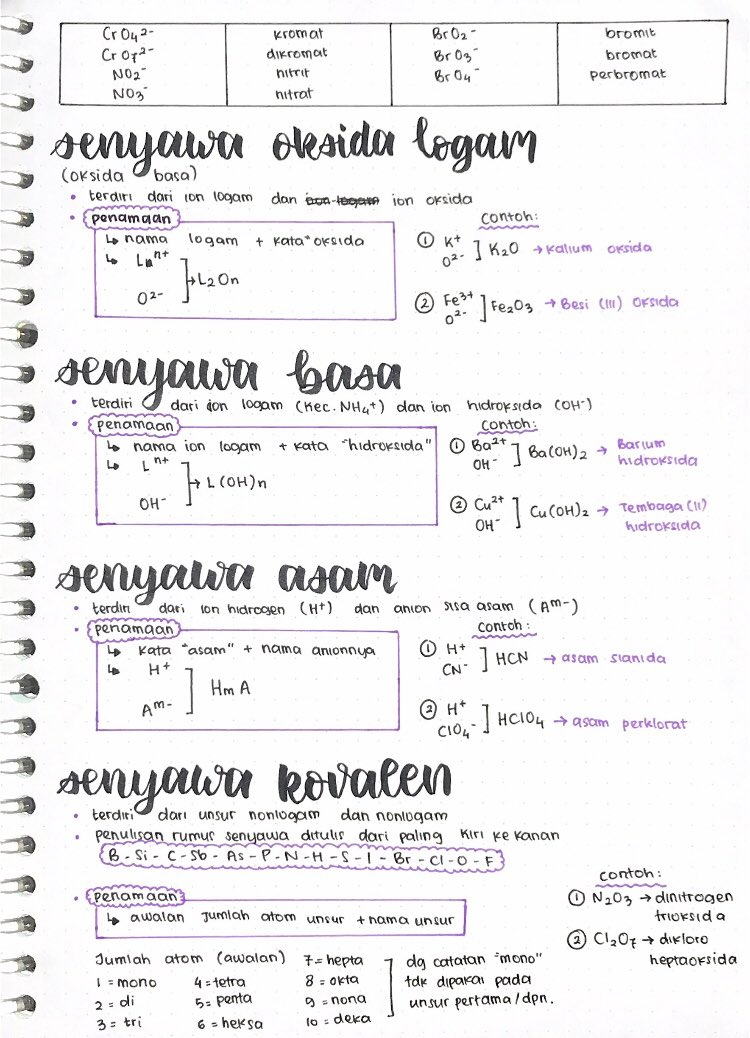 CrO₄²⁻ kromat BrO₂⁻ bromit
CrO₇²⁻ dikromat BrO₃⁻ bromat
NO₂⁻ nitrit BrO₄⁻ perbromat
NO₃⁻ nitrat
senyawa oksida logam
(oksida basa)
• terdiri dari ion logam dan ion logam ion oksida
• penamaan
↳ nama logam + kata "oksida
↳ Lⁿ⁺
O²⁻
→ L₂On
contoh:
① K⁺
O²⁻
] K₂O → kalium oksida
② Fe³⁺
O²⁻
] Fe₂O₃ → Besi (III) oksida
senyawa basa
• terdiri dari ion logam (kec. NH₄⁺) dan ion hidroksida (OH⁻)
• penamaan
↳ nama ion logam + kata "hidroksida"
↳ Lⁿ⁺
OH⁻
→ L(OH)n
contoh:
① Ba²⁺
OH⁻
] Ba(OH)₂ → Barium
hidroksida
② Cu²⁺
OH⁻
] Cu(OH)₂ → Tembaga (II)
hidroksida
senyawa asam
• terdiri dari ion hidrogen (H⁺) dan anion sisa asam (Aᵐ⁻)
• penamaan
↳ kata "asam" + nama anionnya
↳ H⁺
Aᵐ⁻
] HmA
contoh:
① H⁺
CN⁻
] HCN → asam sianida
② H⁺
ClO₄⁻
] HClO₄ → asam perklorat
senyawa kovalen
• terdiri dari unsur nonlogam dan nonlogam
• penulisan rumus senyawa ditulis dari paling kiri ke kanan
B - Si - C - Sb - As - P - N - H - S - I - Br - Cl - O - F
• penamaan
↳ awalan jumlah atom unsur + nama unsur
contoh:
① N₂O₃ → dinitrogen
trioksida
② Cl₂O₇ → dikloro
heptaoksida
Jumlah atom (awalan) 7 = hepta
1 = mono 4 = tetra 8 = okta
2 = di 5 = penta 9 = nona
3 = tri 6 = heksa 10 = deka
dg catatan "mono"
tdk dipakai pada
unsur pertama/dpn.